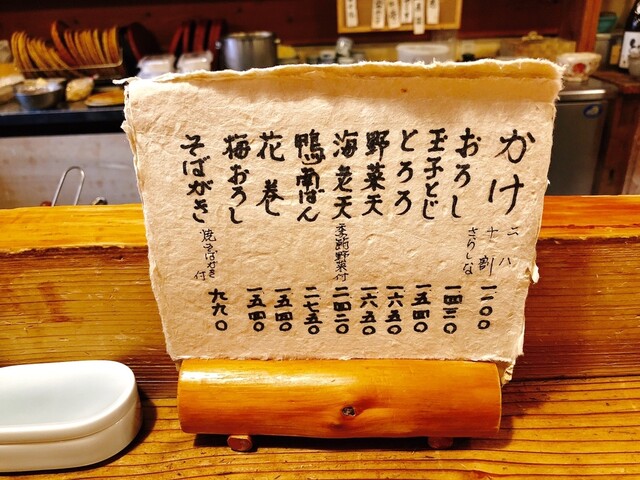 かけ 二八 十割 さらしな 一一〇〇
おろし 一四三〇
玉子とじ 一五四〇
とろろ 一六五〇
野菜天 一六五〇
海老天 季節野菜付 二四二〇
鴨南ばん 二七五〇
花巻 一五四〇
梅おろし 一五四〇
そばがき 焼そばがき付 九九〇